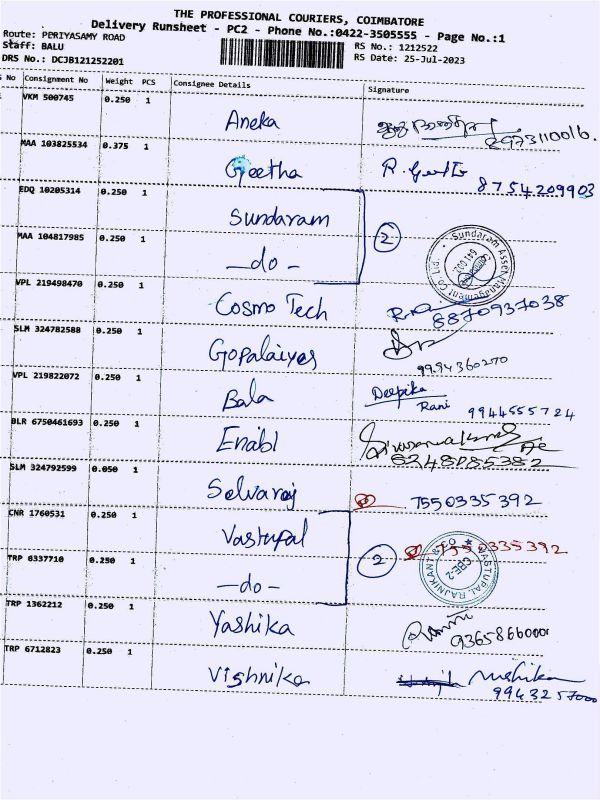 THE PROFESSIONAL COURIERS, COIMBATORE
Delivery Runsheet - PC2 - Phone No.:0422-3505555 - Page No.:1
Route: PERIYASAMY ROAD RS No.: 1212522
Staff: BALU RS Date: 25-Jul-2023
DRS No.: DCJB121252201
S No Consignment No Weight PCS Consignee Details Signature
VKM 500745 0.250 1 Aneka
MAA 103825534 0.375 1 Geetha R. Geetha 8754209903
EDQ 10205314 0.250 1 Sundaram
2
Sundaram Asset Management Co Ltd.
MAA 104817985 0.250 1 -do-
VPL 219498470 0.250 1 Cosmo Tech 8870937038
SLM 324782588 0.250 1 Gopalaiyer 9994360270
VPL 219822072 0.250 1 Bala Deepika
Rani 9944555724
BLR 6750461693 0.250 1 Enabl
SLM 324792599 0.050 1 Selvaraj 7550335392
CNR 1760531 0.250 1 Vastupal 7550335392
2
VASTUPAL RAJNIKANT & CO
CBE-2
TRP 6337710 0.250 1 -do-
TRP 1362212 0.250 1 Yashika
TRP 6712823 0.250 1 Vishnika